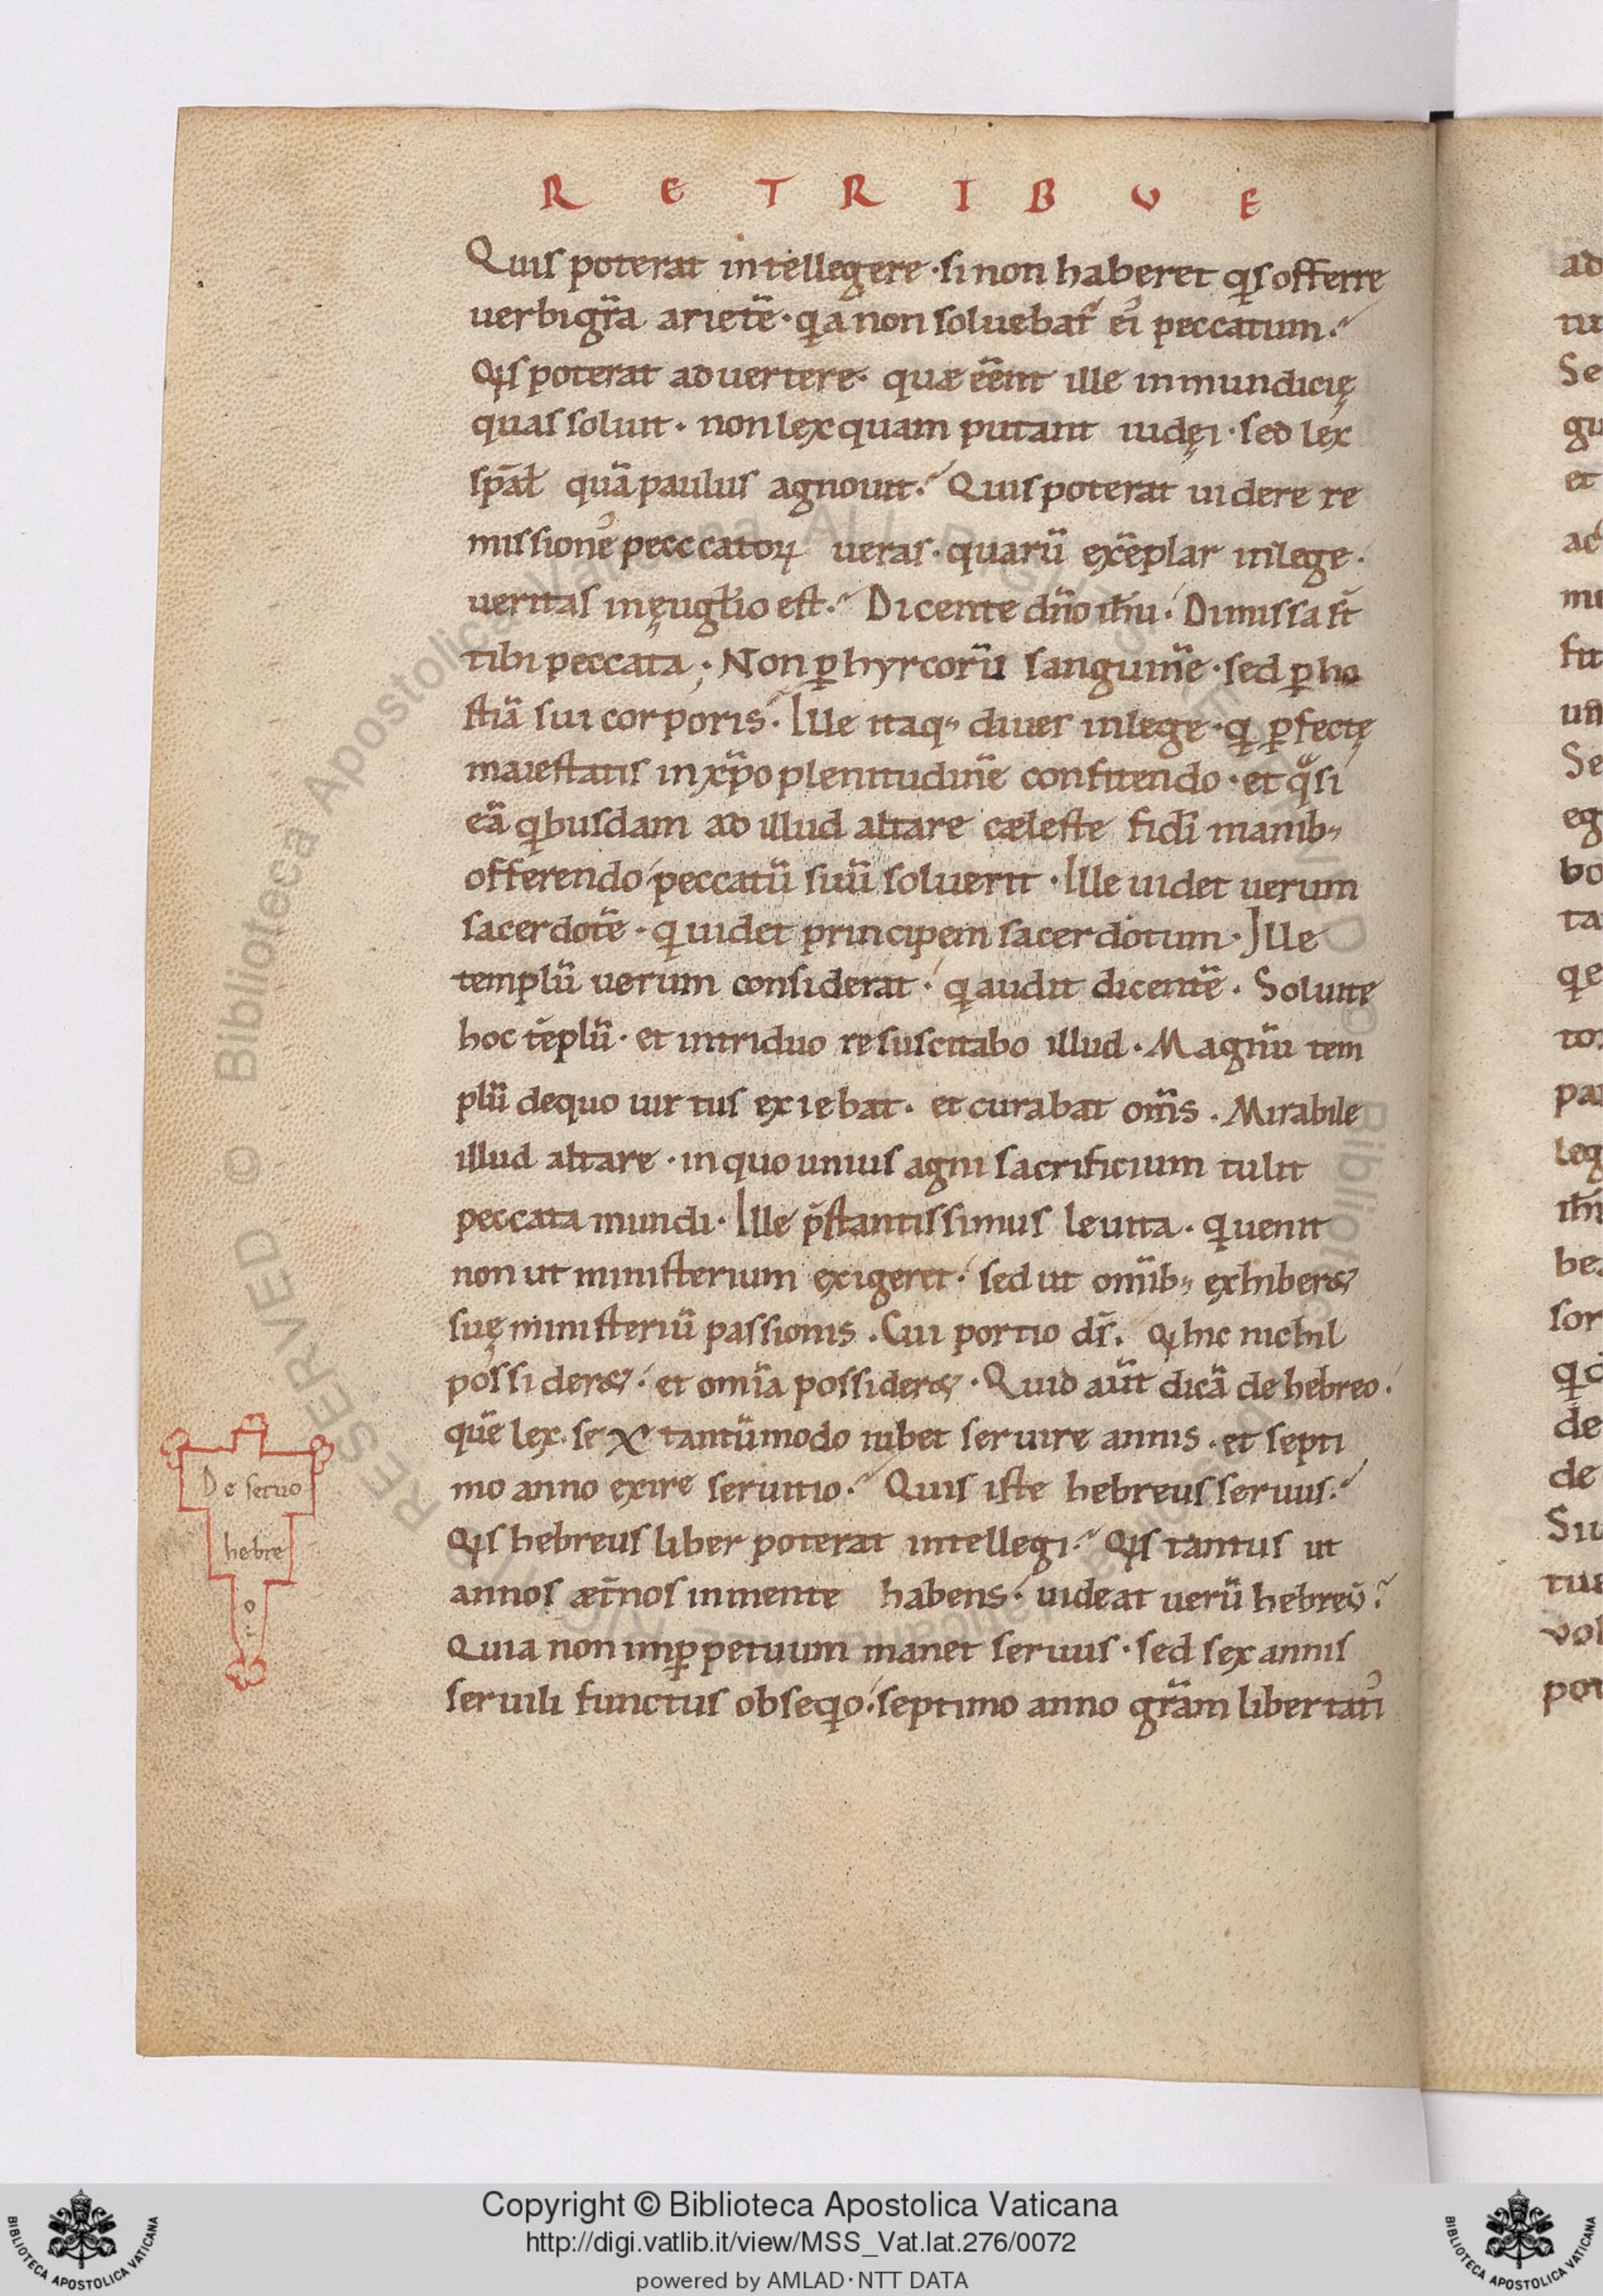 R E T R I B V E
Quis poterat intellegere · si non haberet qͥs offerre
uerbigr̃a arietẽ · qͥa non soluebat᷑ ei᷒ peccatum ·
Qͥs poterat aduertere · quæ eẽnt ille inmundicię
quas soluit · non lex quam putant iudęi · sed lex
sp̃al quã paulus agnouit · Quis poterat uidere re
missione᷒ pecccatoꝝ ueras · quarũ exẽplar in lege ·
ueritas in ęuglio est · Dicente dño ihũ · Dimissa st̃
tibi peccata ; Non ꝑ hyrcorũ sanguinẽ · sed ꝑ ho
stiã sui corporis · Ille itaq; diues in lege · qͥ ꝑfectę
maiestatis in xp̃o plenitudinẽ confitendo · et qͣsi
eã qͥbusdam ad illud altare cæleste fidẽi manib;
offerendo peccatũ suũ soluerit · Ille uidet uerum
sacerdotẽ · qͥ uidet principem sacerdotum · Ille
templũ uerum considerat · qͥ audit dicentẽ · Soluite
hoc tẽplũ · et in triduo resuscitabo illud · Magnũ tem
plũ de quo uirtus exiebat · et curabat om̃s · Mirabile
illud altare · in quo unius agni sacrificium tulit
peccata mundi · Ille p̃stantissimus leuita · qͥ uenit
non ut ministerium exigeret · sed ut omĩb; exhiber&
suę ministeriũ passionis · Cui portio dr̃ · Qͥ hic nichil
possider& · et omĩa possider& · Quid aũt dicã de hebreo ·
quẽ lex · sex tantũmodo iubet seruire annis · et septi
mo anno exire seruitio · Quis iste hebreus seruus ·
Qͥs hebreus liber poterat intellegi · Qͥs tantus ut
annos æt̃nos in mente habens · uideat uerũ hebreũ ·
Quia non inꝑpetuum manet seruus · sed sex annis
seruili functus obseqͥo · septimo anno gr̃am libertati᷒
De seruo
hebre
o
RESERVED © Biblioteca Apostolica Vaticana
Copyright © Biblioteca Apostolica Vaticana
http://digi.vatlib.it/view/MSS_Vat.lat.276/0072
powered by AMLAD·NTT DATA
BIBLIOTECA APOSTOLICA VATICANA
BIBLIOTECA APOSTOLICA VATICANA